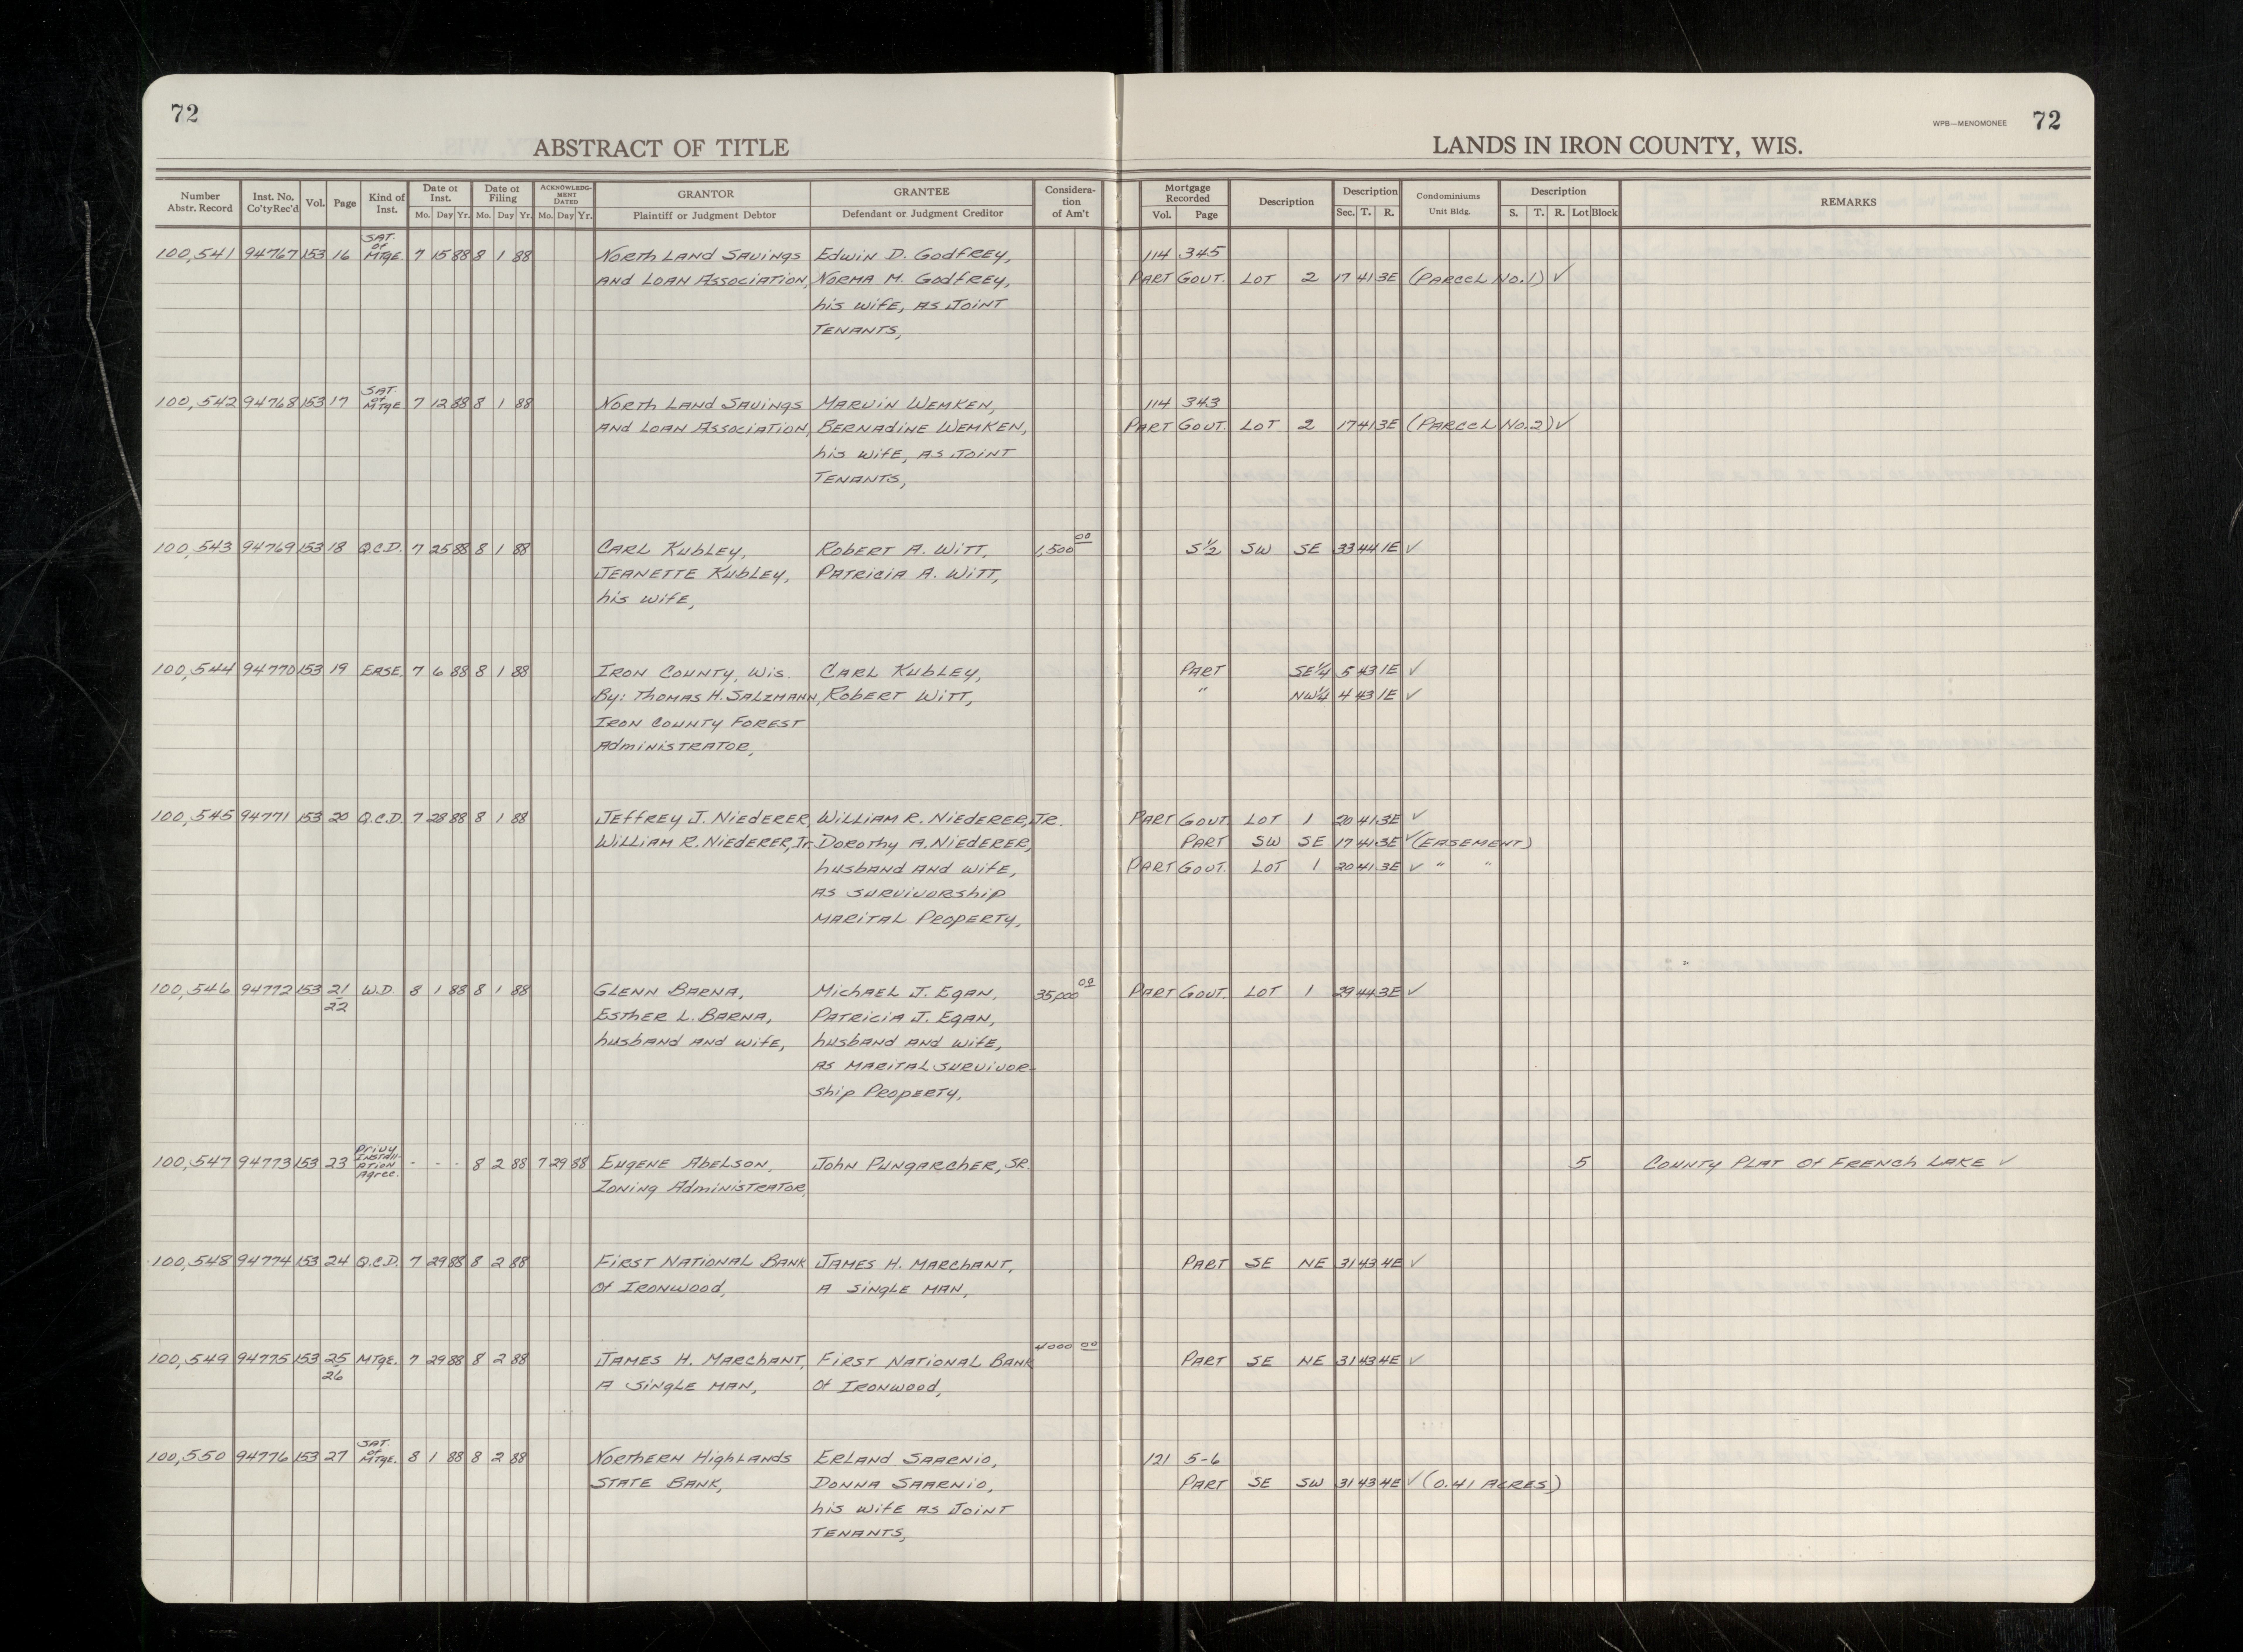 72
ABSTRACT OF TITLE
LANDS IN IRON COUNTY, WIS.
WPB—MENOMONEE 72
Number Abstr. Record | Inst. No. Co'ty Rec'd | Vol. | Page | Kind of Inst. | Date of Inst. Mo. Day Yr. | Date of Filing Mo. Day Yr. | ACKNOWLEDGMENT DATED Mo. Day Yr. | GRANTOR Plaintiff or Judgment Debtor | GRANTEE Defendant or Judgment Creditor | Consideration of Am't | Mortgage Recorded Vol. Page | Description | Description Sec. T. R. | Condominiums Unit Bldg. | Description S. T. R. Lot Block | REMARKS
100,541 94767 153 16 SAT. of MTGE. 7 15 88 8 1 88 North Land Savings Edwin D. Godfrey, 114 345
and Loan Association, Norma M. Godfrey, Part Gov't. Lot 2 17 41 3E (Parcel No. 1) ✓
his wife, as Joint
Tenants,
100,542 94768 153 17 SAT. of MTGE 7 12 88 8 1 88 North Land Savings Marvin Wemken, 114 343
and Loan Association, Bernadine Wemken, Part Gov't. Lot 2 17 41 3E (Parcel No. 2) ✓
his wife, as Joint
Tenants,
100,543 94769 153 18 Q.C.D. 7 25 88 8 1 88 Carl Kubley, Robert A. Witt, 1,500 00 S½ SW SE 33 44 1E ✓
Jeanette Kubley, Patricia A. Witt,
his wife,
100,544 94770 153 19 EASE. 7 6 88 8 1 88 Iron County, Wis. Carl Kubley, Part SE¼ 5 43 1E ✓
By: Thomas H. Salzmann, Robert Witt, " NW¼ 4 43 1E ✓
Iron County Forest
Administrator,
100,545 94771 153 20 Q.C.D. 7 28 88 8 1 88 Jeffrey J. Niederer, William R. Niederer, Jr. Part Gov't Lot 1 20 41 3E ✓
William R. Niederer, Jr. Dorothy A. Niederer, Part SW SE 17 41 3E ✓ (Easement)
husband and wife, Part Gov't. Lot 1 20 41 3E ✓ " "
as survivorship
marital Property,
100,546 94772 153 21 W.D. 8 1 88 8 1 88 Glenn Barna, Michael J. Egan, 35,000 00 Part Gov't. Lot 1 29 44 3E ✓
22 Esther L. Barna, Patricia J. Egan,
husband and wife, husband and wife,
as marital survivor-
ship Property,
100,547 94773 153 23 Privy Installation Agree. - - - 8 2 88 7 29 88 Eugene Abelson, John Pungarcher, Sr. 5 County Plat of French Lake ✓
Zoning Administrator,
100,548 94774 153 24 Q.C.D. 7 29 88 8 2 88 First National Bank James H. Marchant, Part SE NE 31 43 4E ✓
of Ironwood, A single man,
100,549 94775 153 25 MTGE. 7 29 88 8 2 88 James H. Marchant, First National Bank 4000 00 Part SE NE 31 43 4E ✓
26 A single man, of Ironwood,
100,550 94776 153 27 SAT. of MTGE. 8 1 88 8 2 88 Northern Highlands Erland Saarnio, 121 5-6
State Bank, Donna Saarnio, Part SE SW 31 43 4E ✓ (0.41 Acres)
his wife as Joint
Tenants,